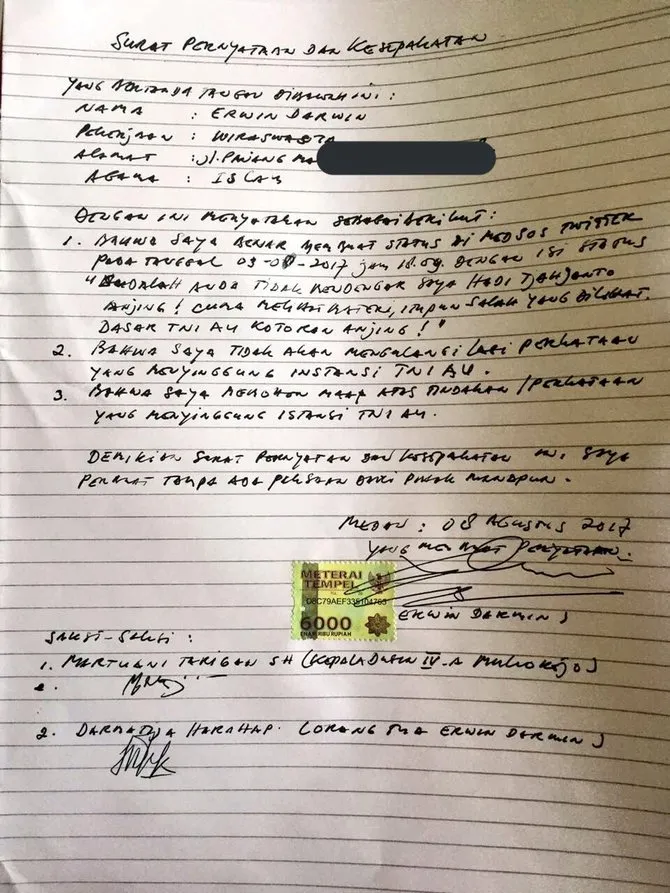 SURAT PERNYATAAN DAN KESEPAKATAN
YANG BERTANDA TANGAN DIBAWAH INI :
NAMA : ERWIN DARWIN
PEKERJAAN : WIRASWASTA
ALAMAT : Jl. PANJANG
AGAMA : ISLAM
DENGAN INI MENYATAKAN SEBAGAI BERIKUT :
1. BAHWA SAYA BENAR MEMBUAT STATUS DI MEDSOS TWITTER
PADA TANGGAL 03-08-2017 jam 18.09. DENGAN ISI STATUS
" ANDA TIDAK MENDENGAR SAYA HADI TJAHJANTO
ANJING! CUMA MELIHAT MATERI, SALAH YANG DILIHAT.
DASAR TNI AU KOTORAN ANJING! "
2. BAHWA SAYA TIDAK AKAN MENGULANGI LAGI PERKATAAN
YANG MENYINGGUNG INSTANSI TNI AU.
3. BAHWA SAYA MEMOHON MAAF ATAS TINDAKAN / PERKATAAN
YANG MENYINGGUNG ISTANSI TNI AU.
DEMIKIAN SURAT PERNYATAN DAN KESEPAKATAN INI. SAYA
PERBUAT TAMPA ADA PAKSAAN DARI PIHAK MANAPUN.
MEDAN : 08 AGUSTUS 2017
YANG MEMBUAT PERNYATAAN.
METERAI
TEMPEL
D8C79AEF335104763
6000
ENAM RIBU RUPIAH
ERWIN DARWIN )
SAKSI-SAKSI :
1. MARTUANI TARIGAN SH (KEPALA DUSUN IV-A MULIOREJO)
2. DARMATIJA HARAHAP. (ORANG TUA ERWIN DARWIN )